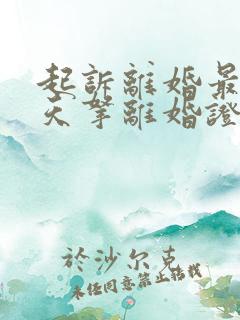 起訴離婚最
天拏離婚證
於沙尔克
未经同意禁止转载